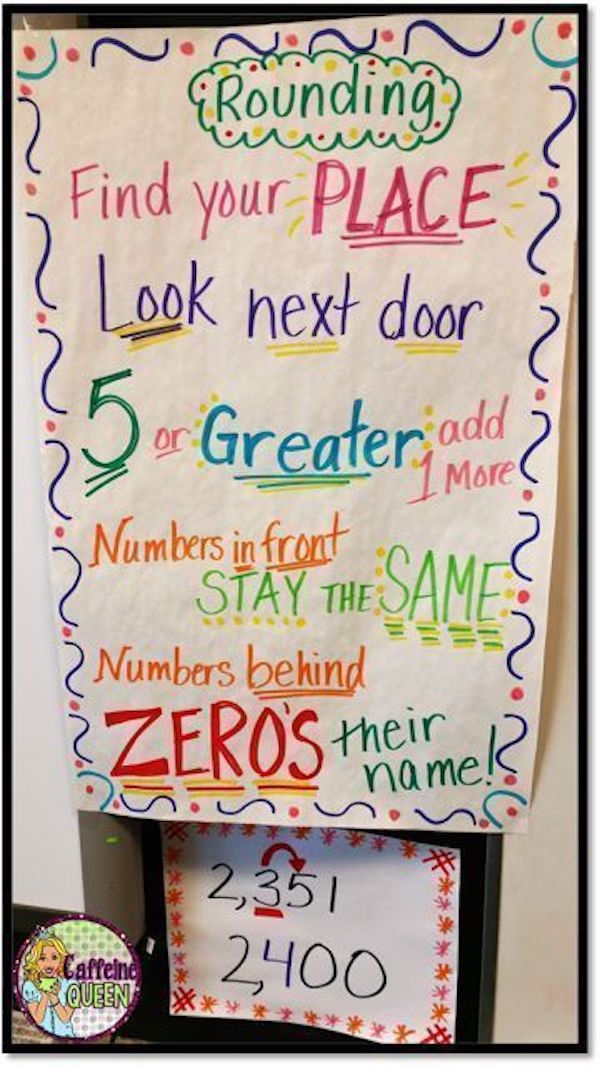 Rounding
Find your PLACE
Look next door
5 or Greater add
1 More
Numbers in front
STAY THE SAME
Numbers behind
ZERO'S their
name!
2,351
2,400
Caffeine
QUEEN